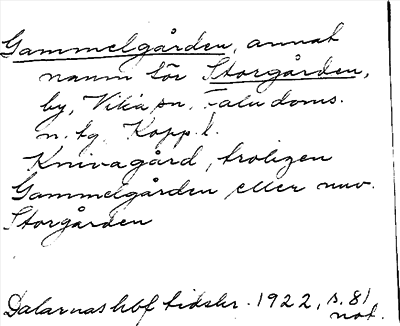 Gammelgården, annat
namn för Storgården,
by, Vika sn, Falu doms.
n. tg. Kopp. l.
Knivagård, troligen
Gammelgården eller nuv.
Storgården
Dalarnas hbf tidskr. 1922, s. 81
not.